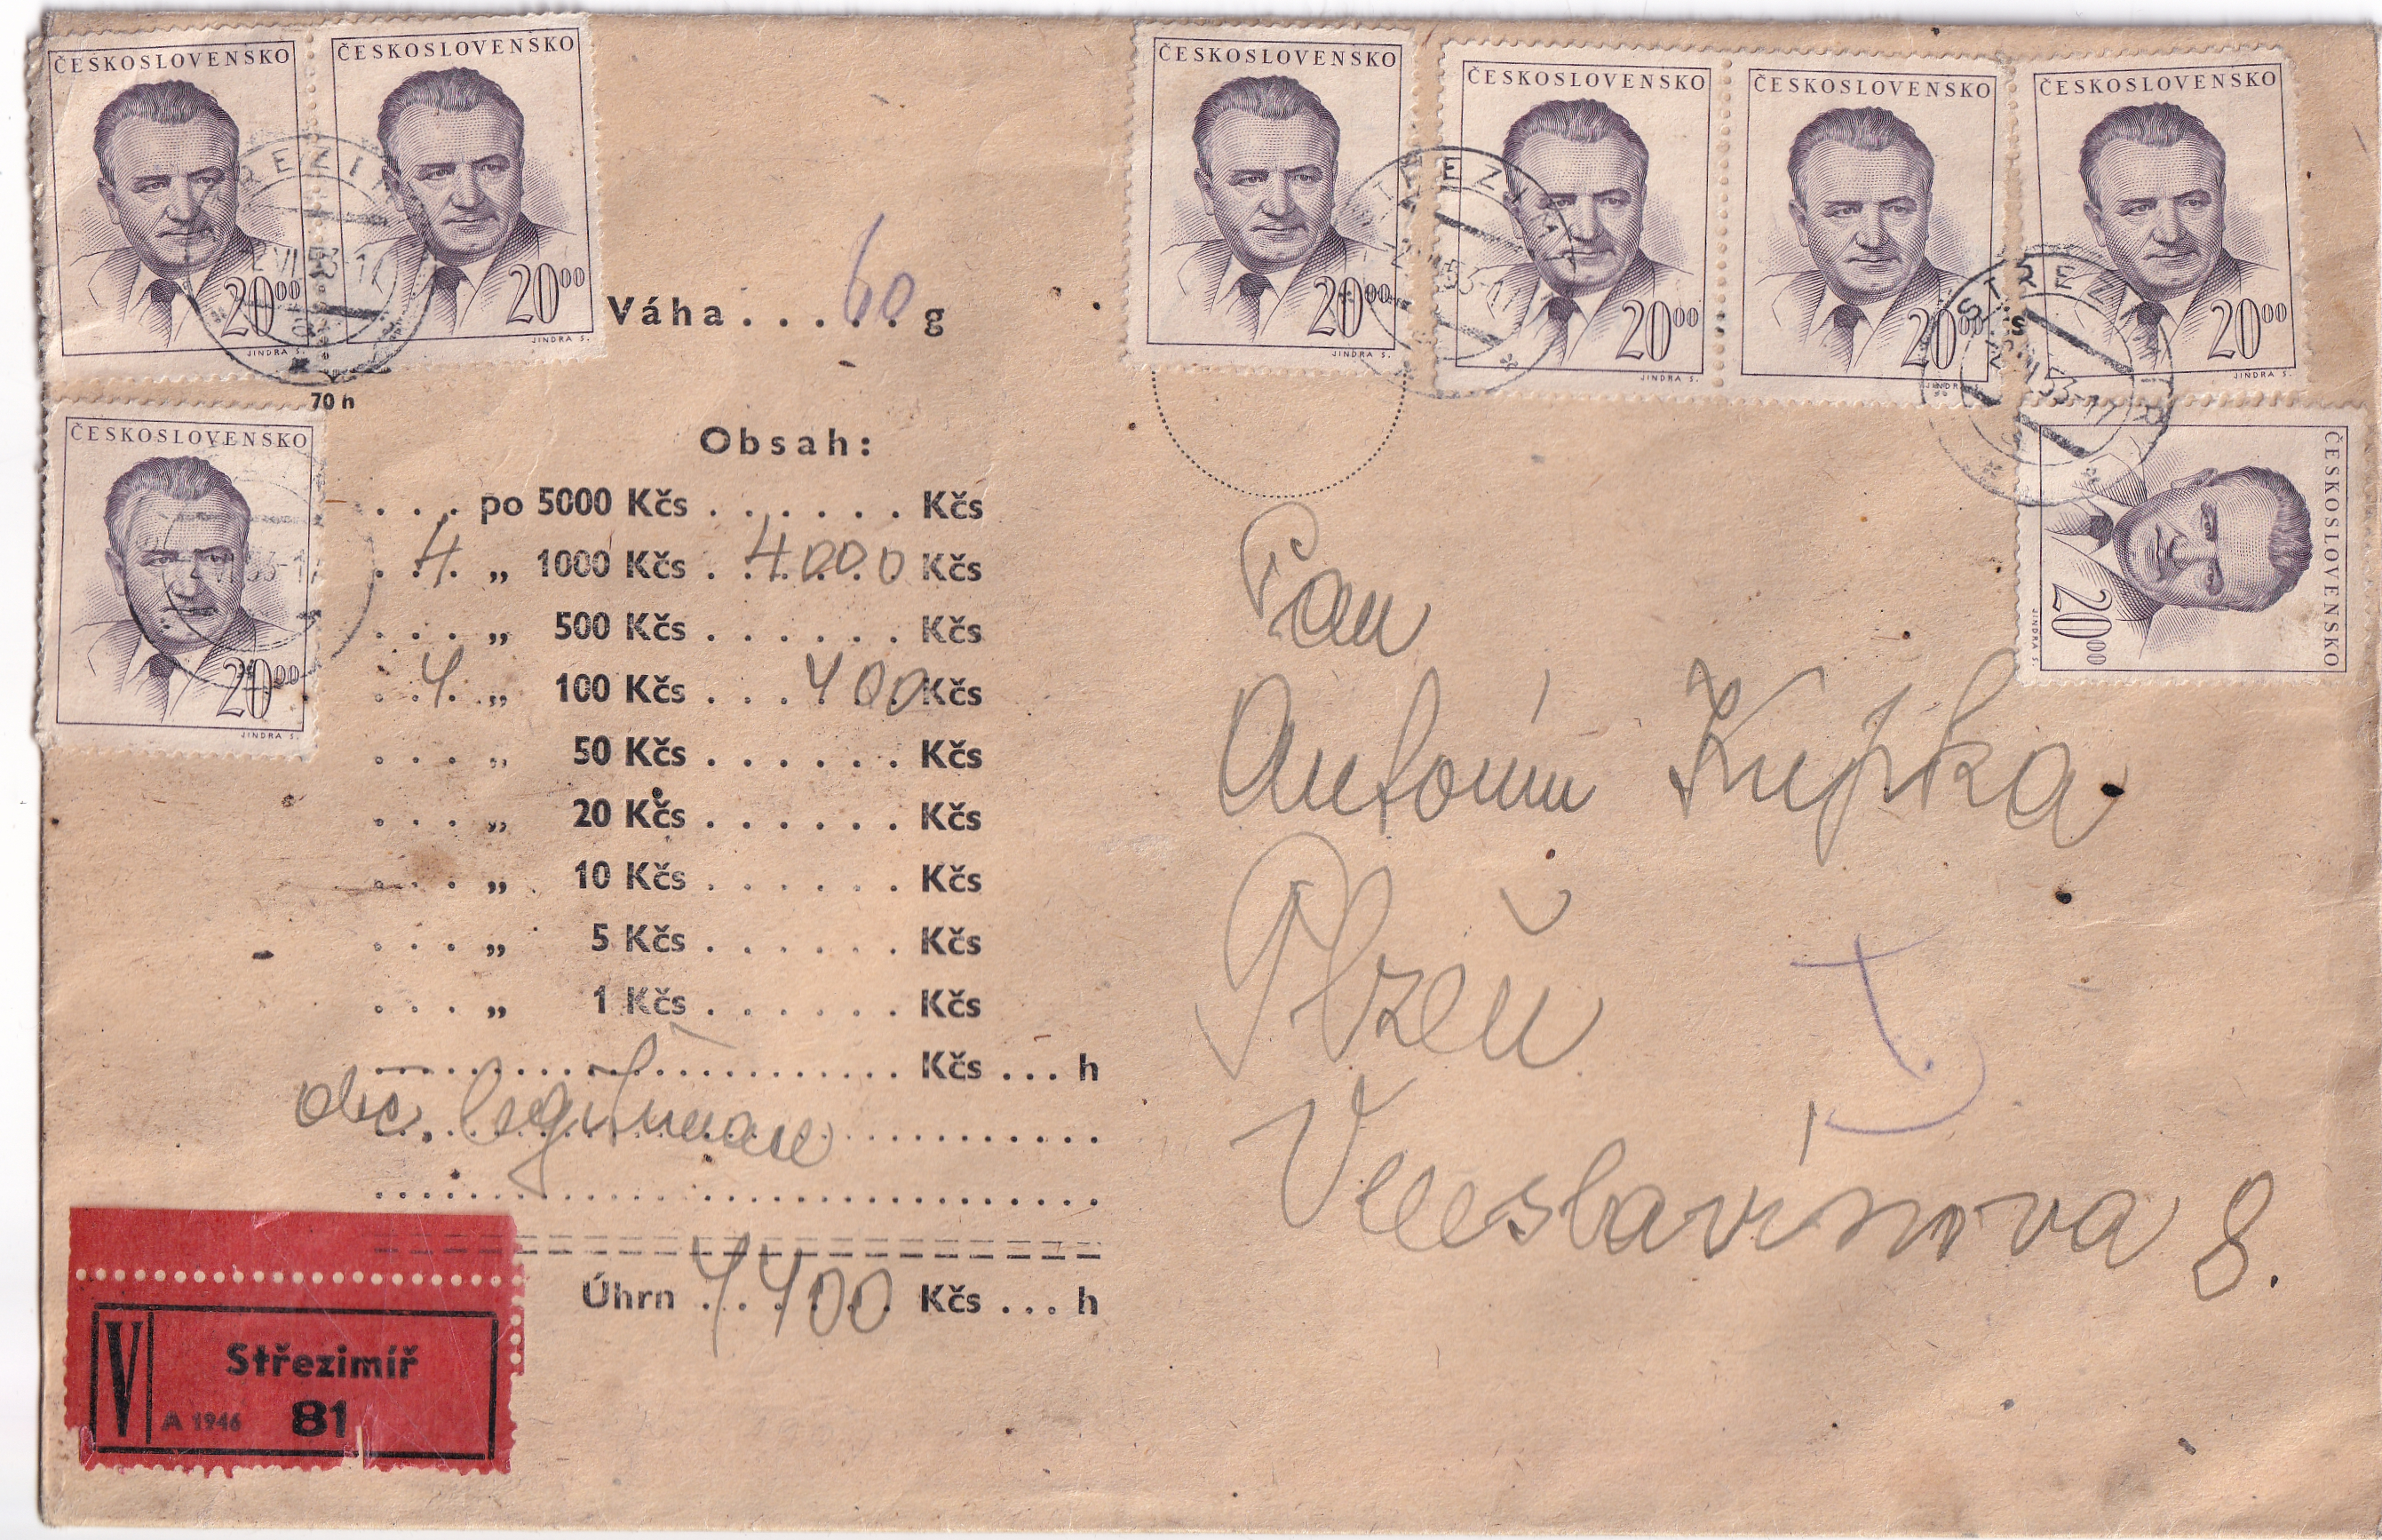 ČESKOSLOVENSKO
20⁰⁰
JINDRA S.
ČESKOSLOVENSKO
20⁰⁰
JINDRA S.
ČESKOSLOVENSKO
20⁰⁰
JINDRA S.
ČESKOSLOVENSKO
20⁰⁰
JINDRA S.
ČESKOSLOVENSKO
20⁰⁰
JINDRA S.
ČESKOSLOVENSKO
20⁰⁰
JINDRA S.
ČESKOSLOVENSKO
20⁰⁰
JINDRA S.
ČESKOSLOVENSKO
20⁰⁰
JINDRA S.
70 h
Váha . . 60 . g
Obsah:
. . . po 5000 Kčs . . . . . . Kčs
4 „ 1000 Kčs . 4000 Kčs
. . . „ 500 Kčs . . . . . . Kčs
4 „ 100 Kčs . . . 400 Kčs
. . . „ 50 Kčs . . . . . . Kčs
. . . „ 20 Kčs . . . . . . Kčs
. . . „ 10 Kčs . . . . . . Kčs
. . . „ 5 Kčs . . . . . . Kčs
. . . „ 1 Kčs . . . . . . Kčs
Kčs . . . h
obč. legitimace
Úhrn 4400 Kčs . . . h
V Střezimíř
A 1946 81
Pan
Antonín Kupka
Plzeň
Veleslavínova 8.